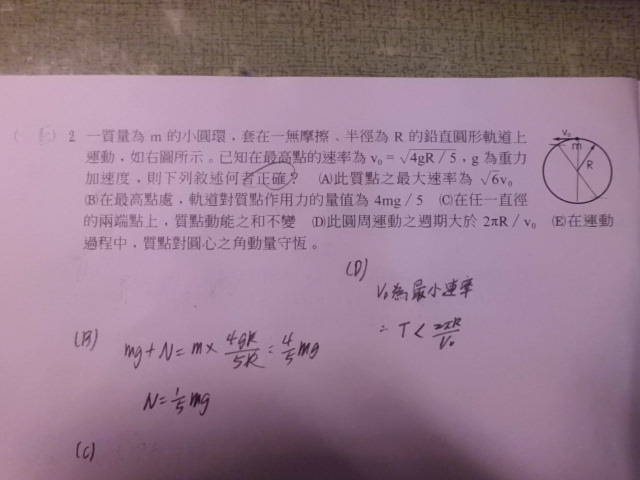 2 一質量為 m 的小圓環，套在一無摩擦、半徑為 R 的鉛直圓形軌道上
運動，如右圖所示。已知在最高點的速率為 v₀ = √4gR / 5，g 為重力
加速度，則下列敘述何者正確？ (A)此質點之最大速率為 √6v₀
(B)在最高點處，軌道對質點作用力的量值為 4mg / 5 (C)在任一直徑
的兩端點上，質點動能之和不變 (D)此圓周運動之週期大於 2πR / v₀ (E)在運動
過程中，質點對圓心之角動量守恆。
v₀
m
R
(D)
V₀為最小速率
∴ T < 2πR/V₀
(B) mg + N = m × 4gR/5R = 4/5 mg
N = 1/5 mg
(C)